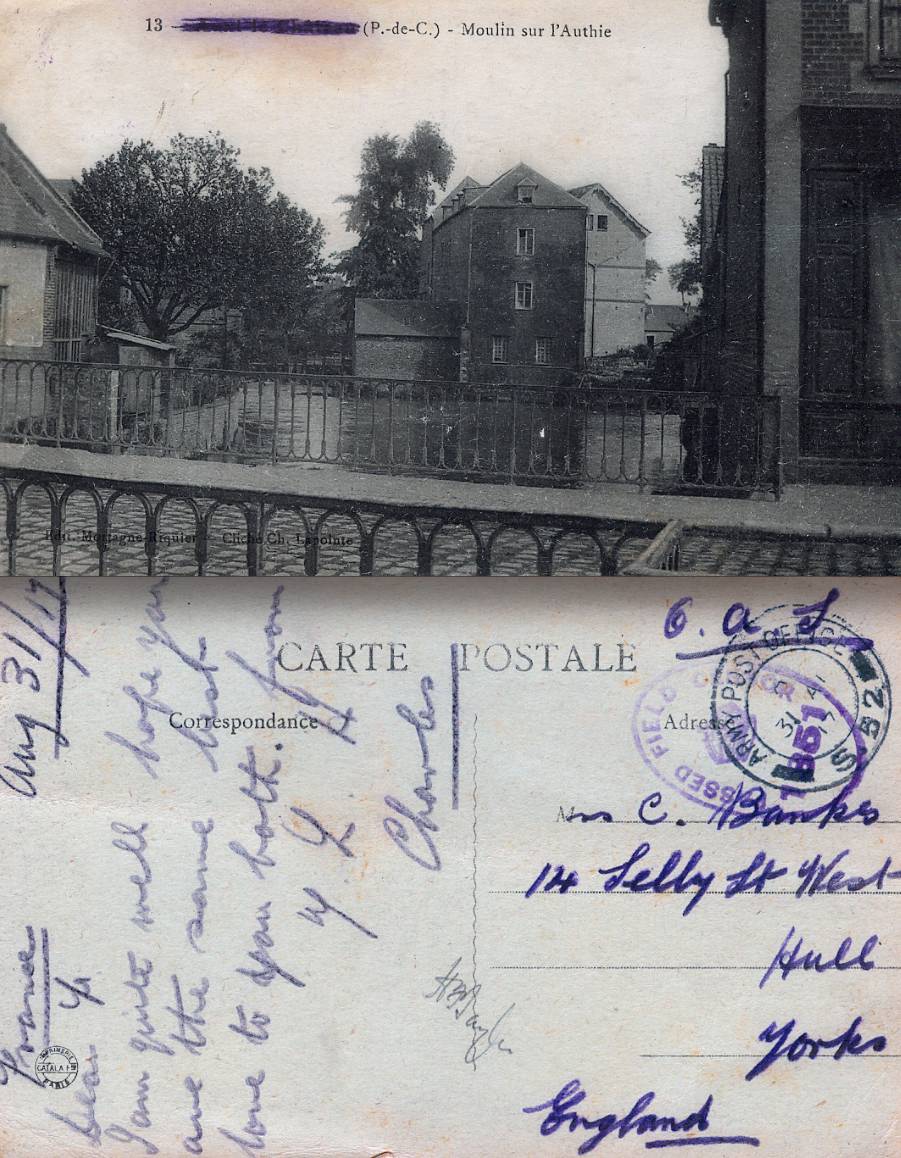 13 - Auxi-le-Château (P.-de-C.) - Moulin sur l'Authie
Edit. Mortagne-Riquier - Cliché Ch. Lapointe
CARTE POSTALE
Correspondance
Adresse
O. a S
ARMY POST OFFICE
S 52
31
PASSED FIELD CENSOR
1851
Mrs C. Banks
14 Selby St West
Hull
Yorks
England
France Aug 31/17
Dear
I am quite well hope you
are the same best
love to you both. from
Charles
IMPRIMERIE
CATALA Fres
PARIS